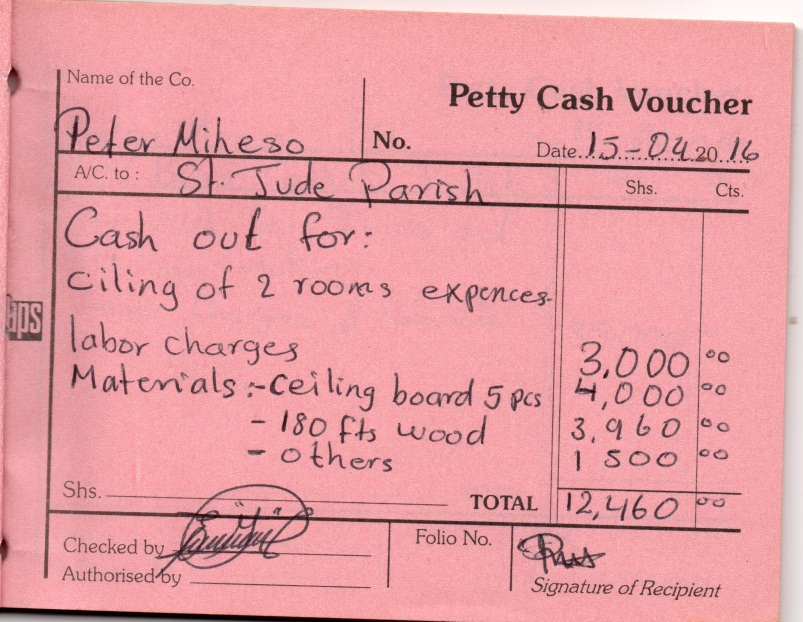 Name of the Co.
Petty Cash Voucher
Peter Miheso
No.
Date...15-04.20..16
A/C. to : St. Jude Parish
Shs. Cts.
Cash out for:
Ciling of 2 rooms expences.
labor charges 3,000 00
Materials :- Ceiling board 5 pcs 4,000 00
- 180 fts wood 3,960 00
- others 1 500 00
Shs. TOTAL 12,460 00
Checked by
Folio No.
Authorised by
Signature of Recipient
aps